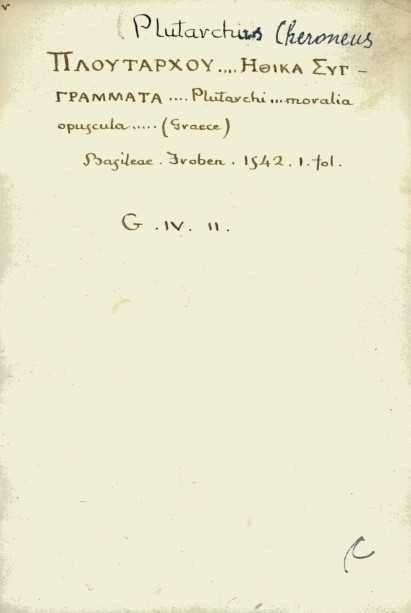 Plutarchus Cheroneus
ΠΛΟΥΤΑΡΧΟΥ .... ΗΘΙΚΑ ΣΥΓ-
ΓΡΑΜΜΑΤΑ .... Plutarchi ... moralia
opuscula ..... (Graece)
Basileae . Froben . 1542 . 1 . fol .
G . IV . 11 .